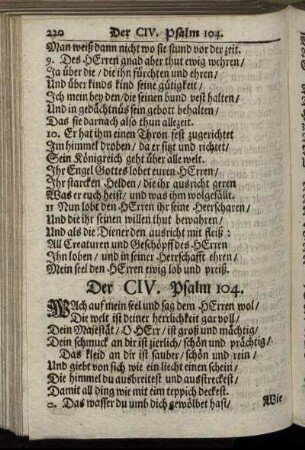 220 Der CIV. Psalm 104.
Man weiß dann nicht wo sie stund vor der zeit.
9. Des HErren gnad aber thut ewig wehren /
Ja über die / die ihn fürchten und ehren /
Und über kinds kind seine gütigkeit /
Ich mein bey den / die seinen bund vest halten /
Und in gedächtnüs sein gebott behalten /
Das sie darnach also thun allezeit.
10. Er hat ihm einen Thron fest zugerichtet
Im himmel droben / da er sitzt und richtet /
Sein Königreich geht über alle welt.
Ihr Engel Gottes lobet euren HErren /
Ihr starcken Helden / die ihr ausricht geren
Was er euch heist / und was ihm wolgefällt.
11 Nun lobt den HErren ihr seine Heerscharen /
Und die ihr seinen willen thut bewahren /
Und als die Diener den ausricht mit fleiß:
All Creaturen und Geschöpff des HErren
Ihn loben / und in seiner Herrschafft ehren /
Mein seel den HErren ewig lob und preiß.
Der CIV. Psalm 104.
WAch auf mein seel und sag dem HErren wol /
Die welt ist deiner herrlichkeit gar voll /
Dein Majestät / O HErr / ist groß und mächtig /
Dein schmuck an dir ist zierlich / schön und prächtig /
Das kleid an dir ist sauber / schön und rein /
Und giebt von sich wie ein liecht einen schein /
Die himmel du ausbreitest und ausstreckest /
Damit all ding wie mit eim teppich deckest.
2. Das wasser du umb dich gewölbet hast /
Wie